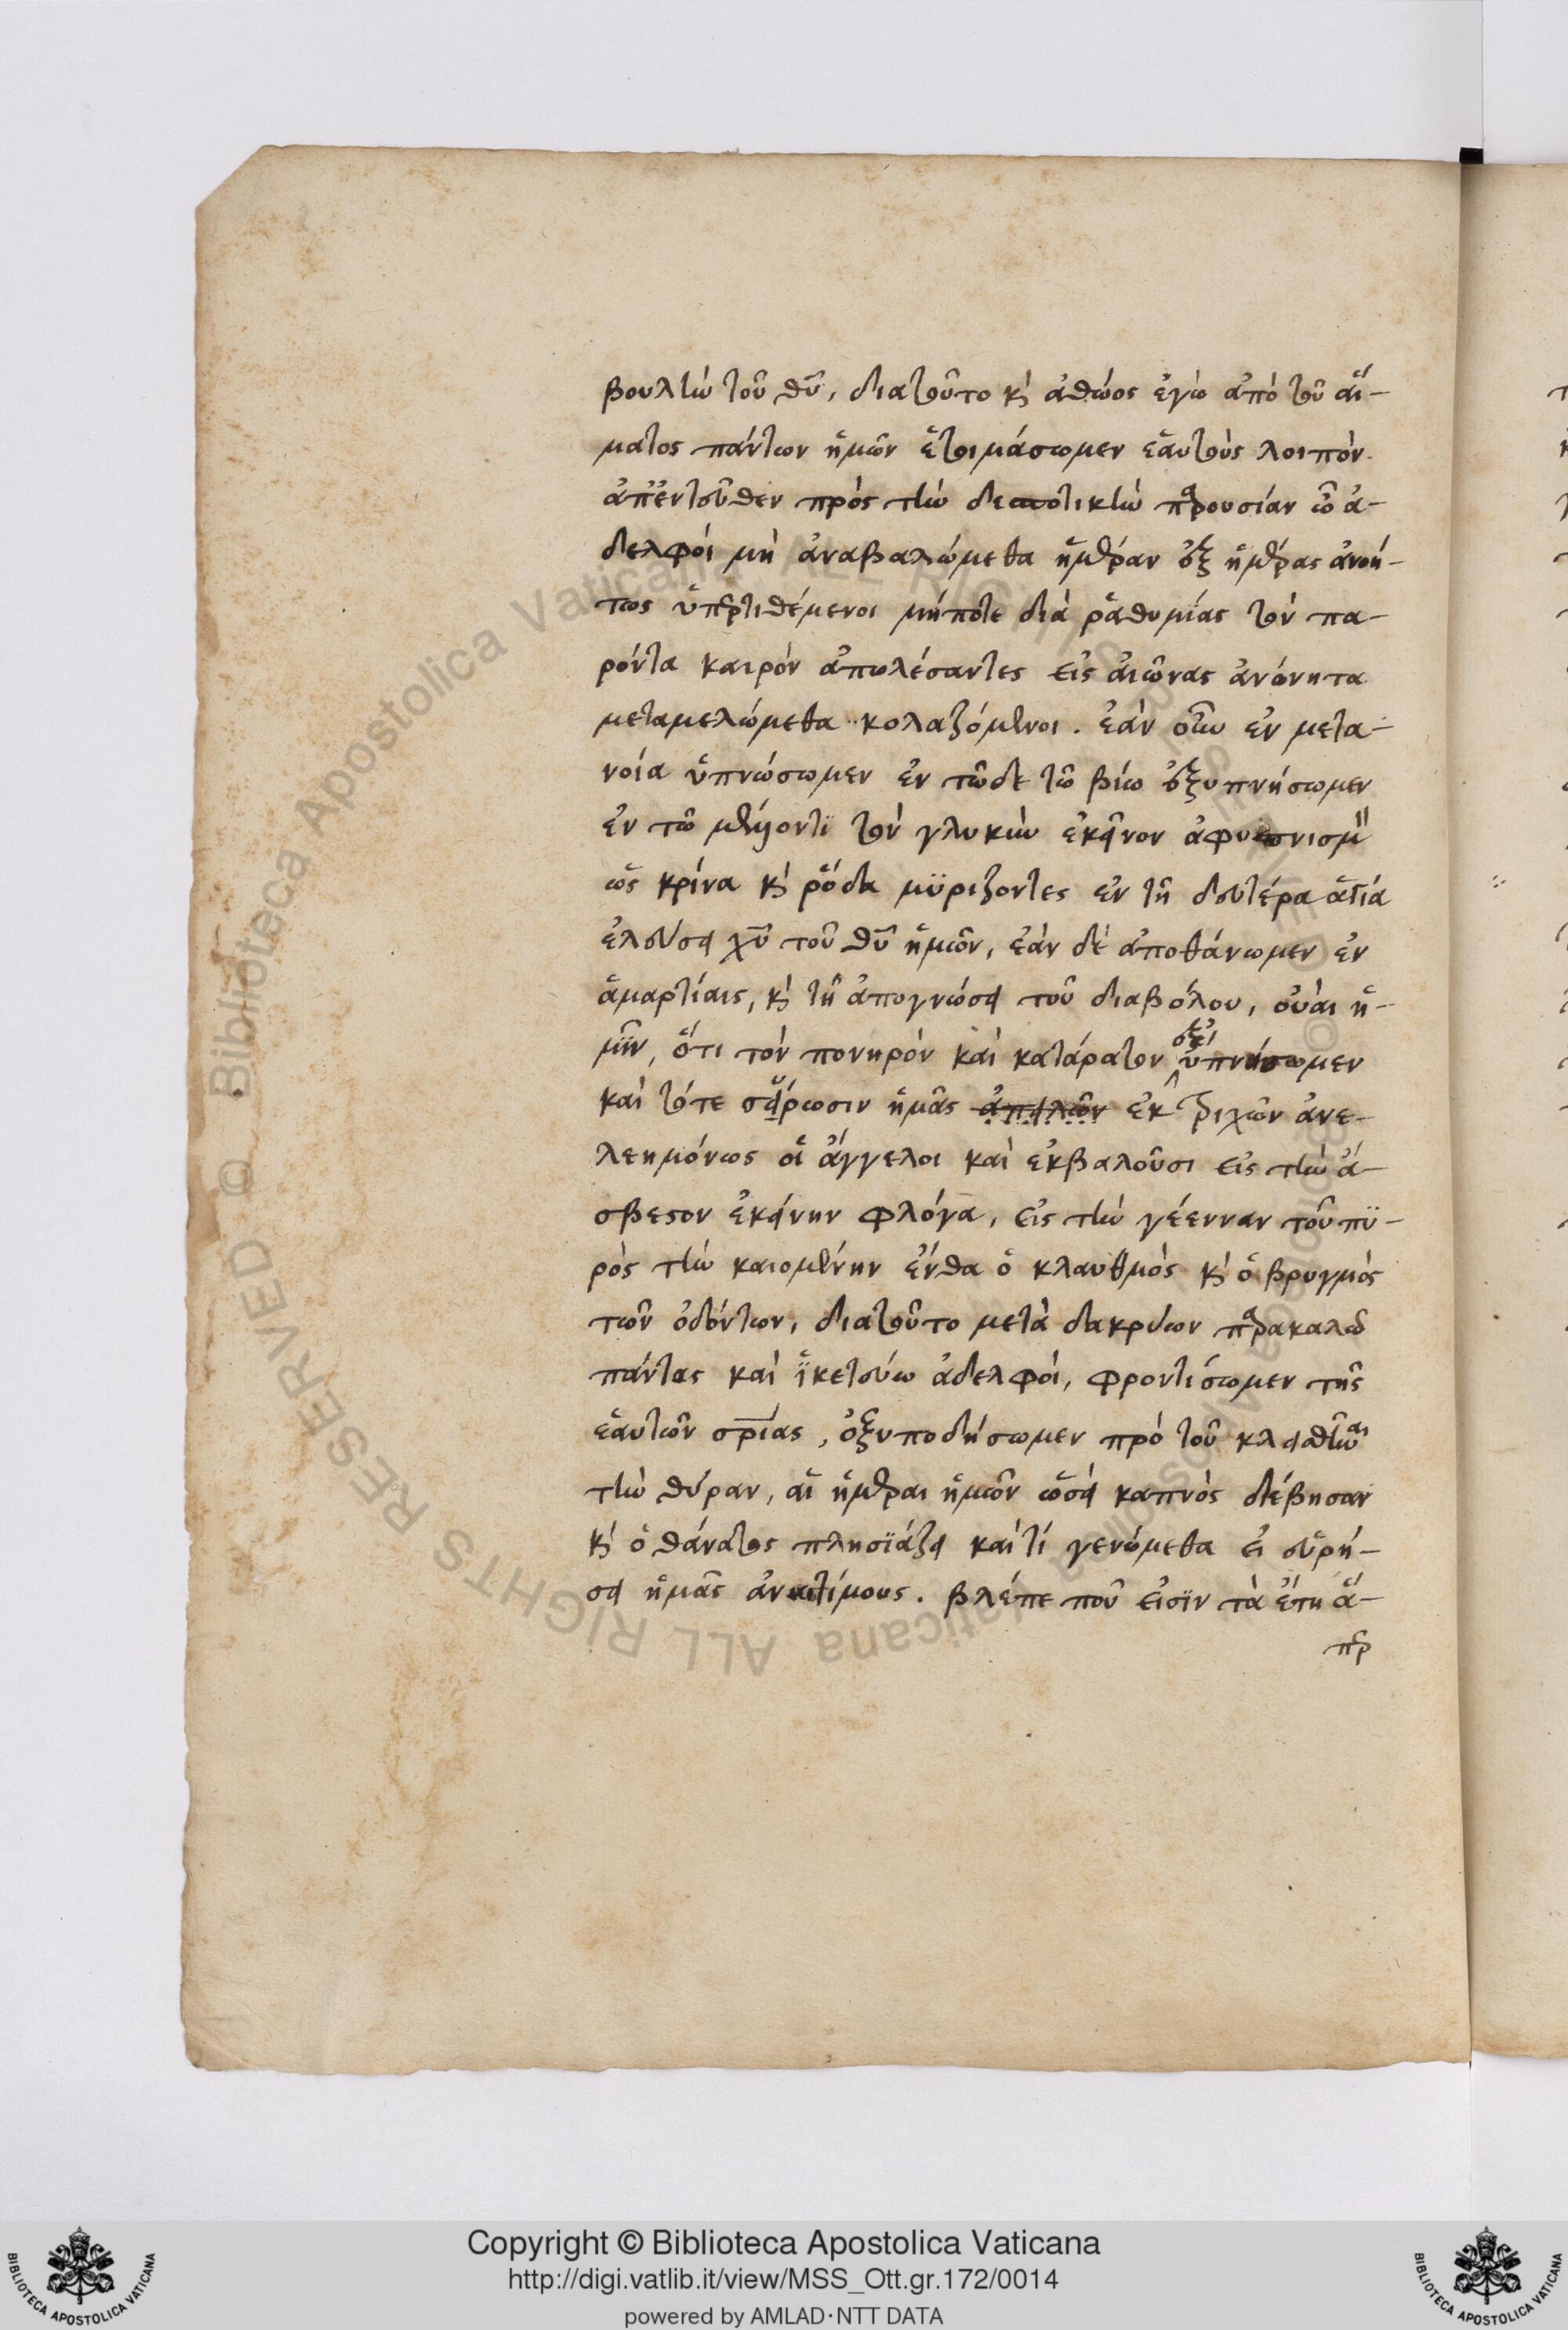 βουλὴν τοῦ θῦ, διατοῦτο κὶ ἀθῶος ἐγὼ ἀπὸ τοῦ αἵ-
ματος πάντων ἡμῶν ἑτοιμάσωμεν ἑαυτοὺς λοιπὸν
ἀπεντεῦθεν πρὸς τὴν δεσποτικὴν παρουσίαν ὦ ἀ-
δελφοί μὴ ἀναβαλώμεθα ἡμέραν ἐξ ἡμέρας ἀνοή-
τως ὑπερτιθέμενοι μήποτε διὰ ῥαθυμίας τὸν πα-
ρόντα καιρὸν ἀπωλέσαντες εἰς αἰῶνας ἀνόνητα
μεταμελώμεθα κολαζόμενοι. ἐὰν οὖν ἐν μετα-
νοία ὑπνώσωμεν ἐν τῶδε τῶ βίω ἐξυπνήσωμεν
ἐν τῶ μέλλοντϊ τὸν γλυκὺν ἐκεῖνον ἀφυπνισμὸν
ὡς κρίνα κὶ ῥόδα μϋρίζοντες ἐν τῆ δευτέρα ἁγία
ἐλεύσει χῦ τοῦ θῦ ἡμῶν, ἐὰν δὲ ἀποθάνωμεν ἐν
ἁμαρτίαις, κὶ τῆ ἀπογνώσει τοῦ διαβόλου, οὐαὶ ἡ-
μῖν, ὅτι τὸν πονηρὸν καὶ κατάρατον ἐξ ὑπνώσωμεν
καὶ τότε σύρωσιν ἡμᾶς ἀπειλῶν ἐκ τριχῶν ἀνε-
λεημόνως οἱ ἄγγελοι καὶ ἐκβαλοῦσι εἰς τὴν ἄ-
σβεστον ἐκείνην φλόγα, εἰς τὴν γέενναν τοῦ πϋ-
ρὸς τὴν καιομένην ἔνθα ὁ κλαυθμὸς κὶ ὁ βρυγμὸς
τῶν ὀδόντων, διατοῦτο μετὰ δακρύων παρακαλῶ
πάντας καὶ ἱκετεύω ἀδελφοί, φροντίσωμεν τῆς
ἑαυτῶν σρίας, ὀξυποδήσωμεν πρὸ τοῦ κλεισθῆναι
τὴν θύραν, αἱ ἡμέραι ἡμῶν ὡσεὶ καπνὸς διέβησαν
κὶ ὁ θάνατος πλησϊάζει καὶ τί γενώμεθα εἰ εὑρή-
σει ἡμᾶς ἀνετίμους. βλέπε ποῦ εἰσϊν τὰ ἔτη ἅ-
περ
Copyright © Biblioteca Apostolica Vaticana
http://digi.vatlib.it/view/MSS_Ott.gr.172/0014
powered by AMLAD·NTT DATA